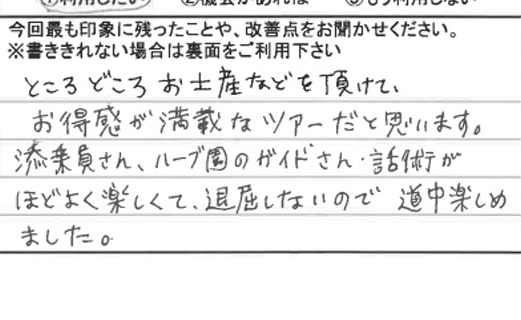 ①利用したい ②機会があれば ③もう利用しない
今回最も印象に残ったことや、改善点をお聞かせください。
※書ききれない場合は裏面をご利用下さい
ところどころ お土産などを頂けて、
お得感が満載なツアーだと思います。
添乗員さん、ハーブ園のガイドさん・話術が
ほどよく楽しくて、退屈しないので 道中楽しめ
ました。